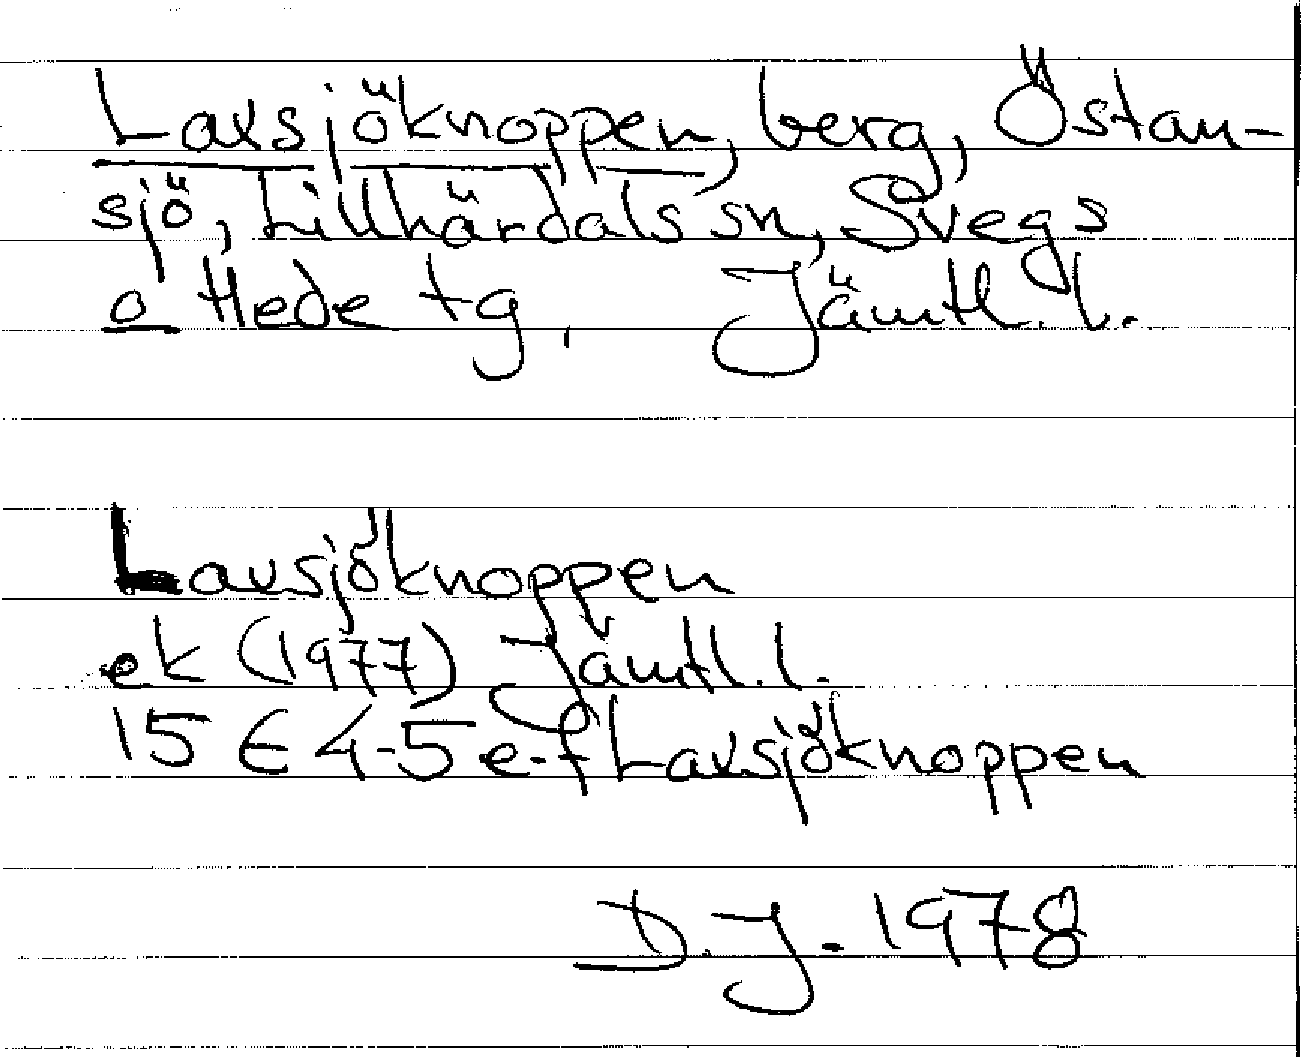 Laxsjöknoppen, berg, Östan-
sjö, Lillhärdals sn, Svegs
o Hede tg, Jämtl. l.
Laxsjöknoppen
ek (1977) Jämtl. l.
15 E 4-5 e-f Laxsjöknoppen
D.J. 1978